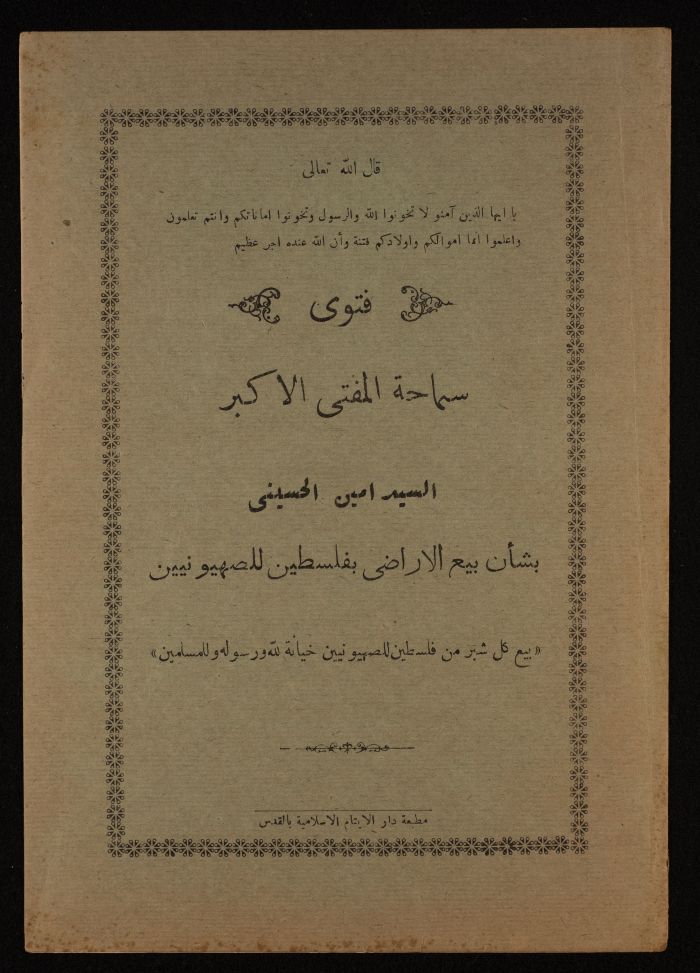 قال الله تعالى
يا ايها الذين آمنو لا تخونوا الله والرسول وتخونوا اماناتكم وانتم تعلمون
واعلموا انما اموالكم واولادكم فتنة وأن الله عنده اجر عظيم
فتوى
سماحة المفتى الاكبر
السيد امين الحسينى
بشأن بيع الاراضى بفلسطين للصهيونيين
«بيع كل شبر من فلسطين للصهيونيين خيانة لله ورسوله وللمسلمين»
مطبعة دار الايتام الاسلامية بالقدس